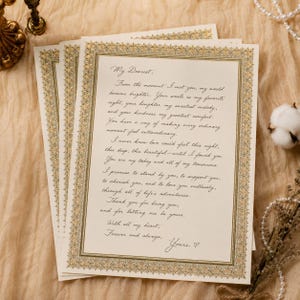 My Dearest,
From the moment I met you, my world
became brighter. Your smile is my favorite
sight, your laughter my sweetest melody,
and your kindness my greatest comfort.
You have a way of making every ordinary
moment feel extraordinary.
I never knew love could feel this right,
this deep, this beautiful—until I found you.
You are my today and all of my tomorrows.
I promise to stand by you, to support you,
to cherish you, and to love you endlessly,
through all of life's adventures.
Thank you for being you,
and for letting me be yours.
With all my heart,
Forever and always,
Yours, ♡